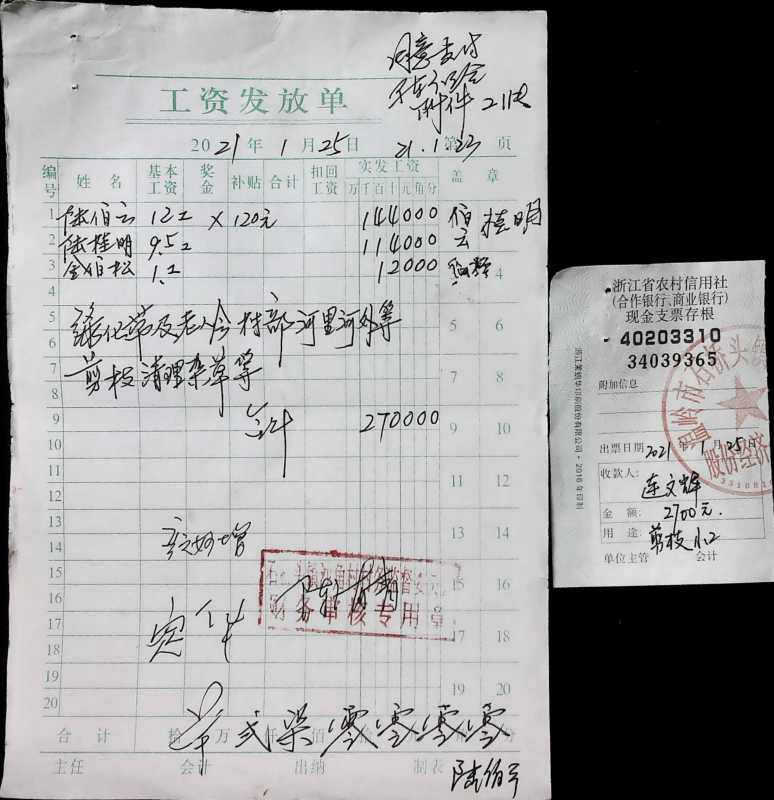 同意支付
附件 21张
工资发放单
2021年1月25日 21.1.23 第 页
编号 姓名 基本工资 奖金 补贴 合计 扣回工资 实发工资 万千百十元角分 盖章
1 陆伯云 12工 × 120元 144000 伯云 桂明
2 陆桂明 9.5工 114000
3 金伯松 1工 12000 4
5 绿化带及老人会村部河里河外等 5 6
6
7 剪枝清理杂草等 7 8
8
9 合计 270000 9 10
10
11 11 12
12
13 13 14
14
15 15 16
16 财务审核专用章
17 17 18
18
19 19 20
20
合计 拾 万 仟 佰 拾 元 角 分
贰 柒 零 零 零 零
主任 会计 出纳 制表 陆伯云
浙江省农村信用社
(合作银行、商业银行)
现金支票存根
40203310
34039365
附加信息
出票日期 2021年1月25日
收款人:
金额: 2700元.
用途: 剪枝小工
单位主管 会计
温岭市石桥头镇
股份经济